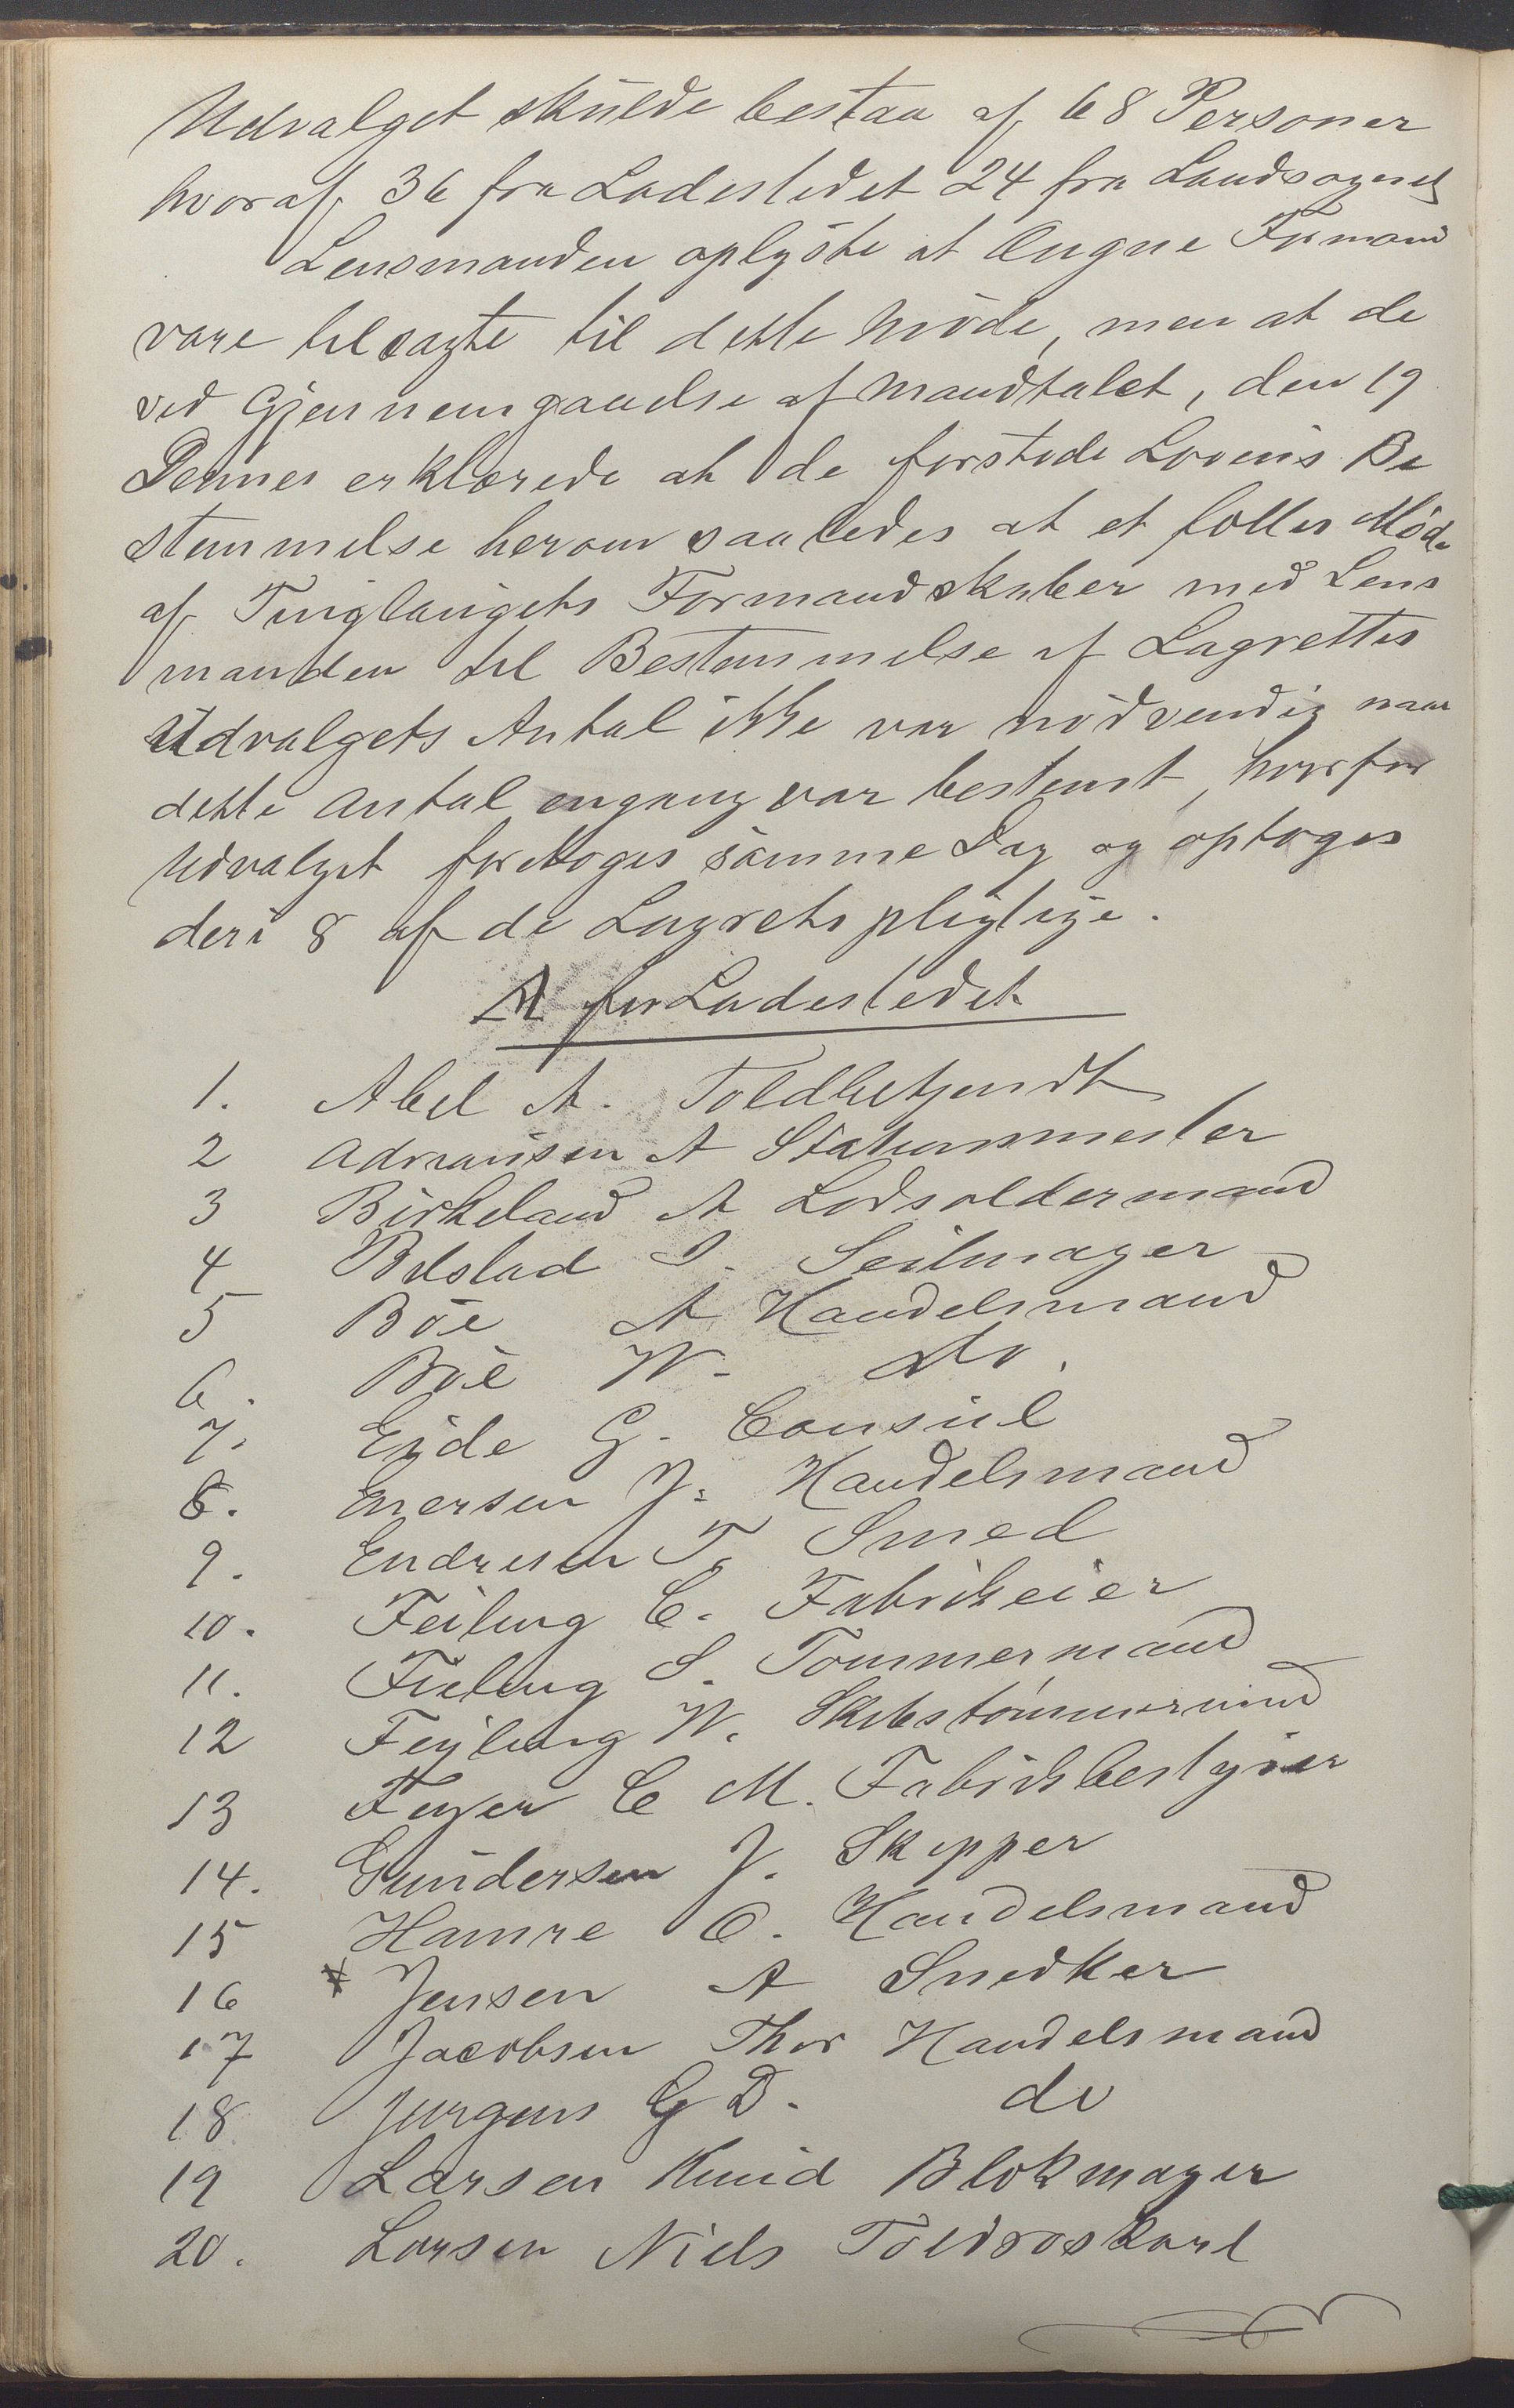 Udvalget skulde bestaa af 68 Personer
hvoraf 36 fra Ladestedet 24 fra Landsognet
Lensmanden oplyste at Ougne Formænd
vare tilsagte til dette Møde, men at de
ved Gjennemgaaelse af Mandtalet, den 19
Dennes erklærede at de forstode Lovens Be
stemmelse herom saaledes at et fælles Møde
af Tinglaugets Formandskaber med Lens
manden til Bestemmelse af Lagrettes
Udvalgets Antal ikke var nødvendig naar
dette Antal engang var bestemt, hvorfor
Udvalget foretoges samme Dag og optoges
deri 8 af de Lagretspligtige.
A for Ladestedet
1. Abel A. Toldbetjendt
2 Adriansen A Stationsmester
3 Birkeland A Lodsoldermand
4 Bilstad I. Seilmager
5 Böe A Handelsmand
6. Böe W. do.
7. Eide G. Consul
8. Eversen J. Handelsmand
9. Endresen T. Smed
10. Feiling C. Fabrikeier
11. Feiling S. Tömmermand
12 Feyling W. Skibstömmermand
13 Feyer C M. Fabrikbestyrer
14. Gundersen J. Skipper
15 Hamre O. Handelsmand
16 * Jensen A Snedker
17 Jacobsen Thor Handelsmand
18 Jurgens G D. do
19 Larsen Knud Blokmager
20. Larsen Niels Toldroskarl